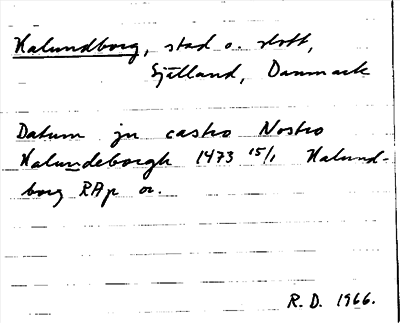 Kalundborg, stad o. slott,
Själland, Danmark
Datum jn castro Nostro
Kalundeborgh 1473 15/1 Kalund-
borg RAp or.
R. D. 1966.